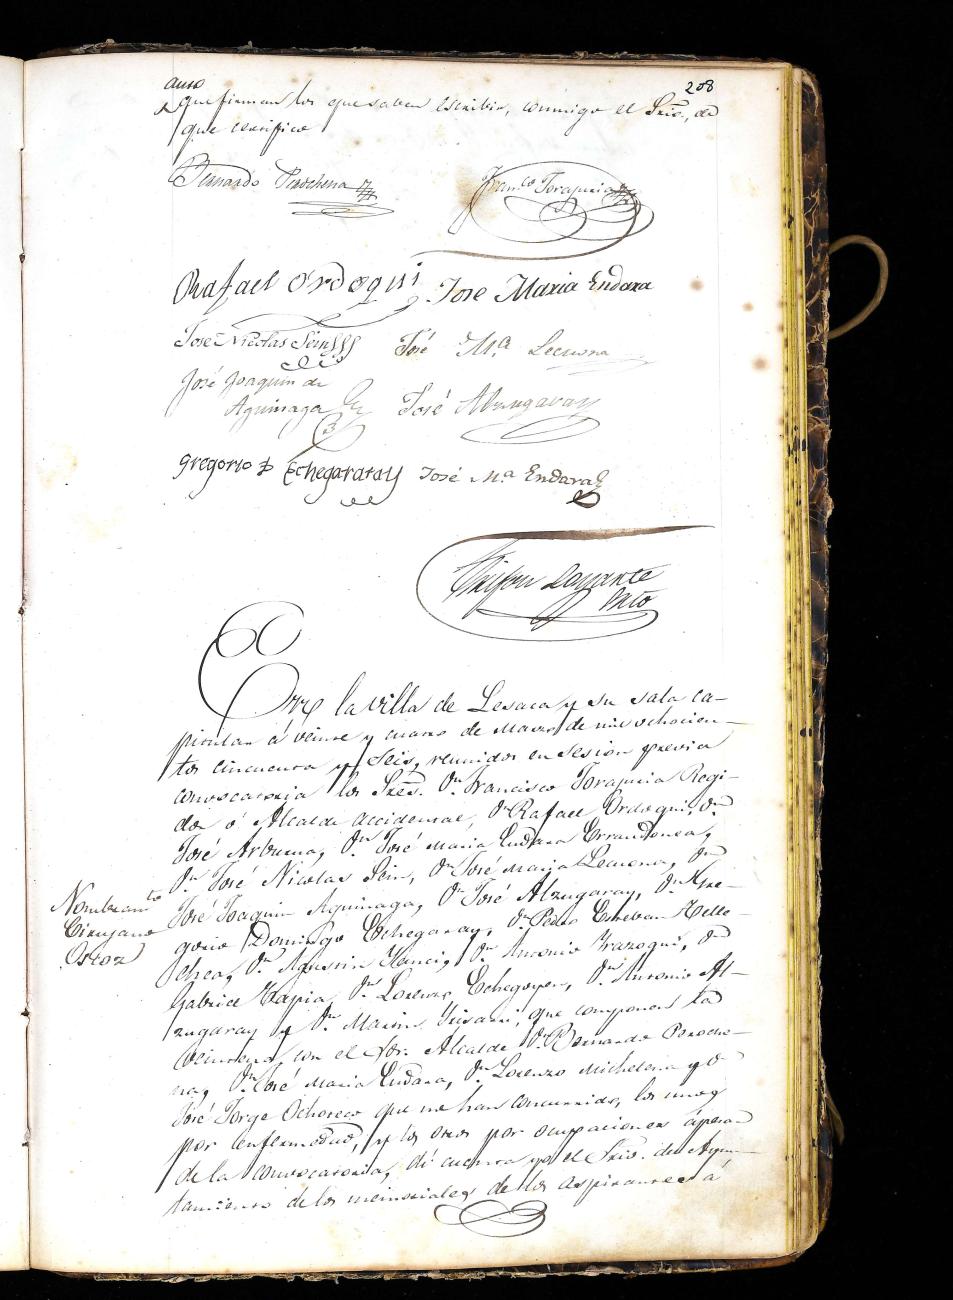 208
auto
que firman los que saben escribir, conmigo el Srio., de
que certifico
Bernardo Perochena
Franco. Torapuria
Rafael Ordoqui
Jose Maria Endara
José Nicolas Sein
José Ma. Lecuona
José Joaquin de
Aguinaga
José Alzugaray
Gregorio D Echegararay
José Ma. Endara
Srio
En la villa de Lesaca y su sala ca-
pitular á veinte y cuatro de Marzo de mil ochocien-
tos cincuenta y Seis, reunidos en sesion previa
convocatoria los Sres. Dn. Francisco Torapuria Regi-
dor ó Alcalde accidental, Dn. Rafael Ordoqui, Dn.
José Arburua, Dn. José Maria Endara Errandonea,
Dn. José Nicolas Sein, Dn. José Maria Lecuona, Dn.
José Joaquin Aguinaga, Dn. José Alzugaray, Dn. Gre-
gorio Domingo Echegaray, Dn. Pedro Esteban Telle-
chea, Dn. Agustin Yanci, Dn. Antonio Yrazoqui, Dn.
Gabriel Tapia, Dn. Lorenzo Echegoyen, Dn. Antonio Al-
zugaray y Dn. Martin que componen la
Veintena, con el Sor. Alcalde Dn. Bernardo Peroche-
na, Dn. José Maria Endara, Dn. Lorenzo Michelena y D
José Jorge Ochoteco que no han concurrido, los unos
por enfermedad, y los otros por ocupaciones ápesar
de la convocatoria, dí cuenta yo el Srio. del Ayun-
tamiento de los memoriales de los aspirantes á
Nombramto.
Cirujano
Ostoz